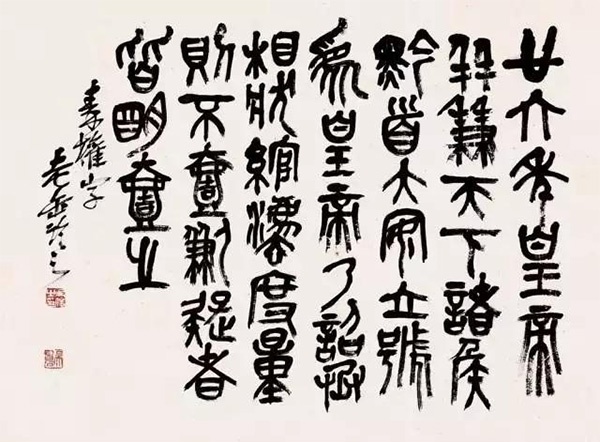 廿六年皇帝
并兼天下諸侯
黔首大安立號
為皇帝乃詔丞
相狀綰灋度量
則不壹歉疑者
皆明壹之
秦權字
老缶臨之